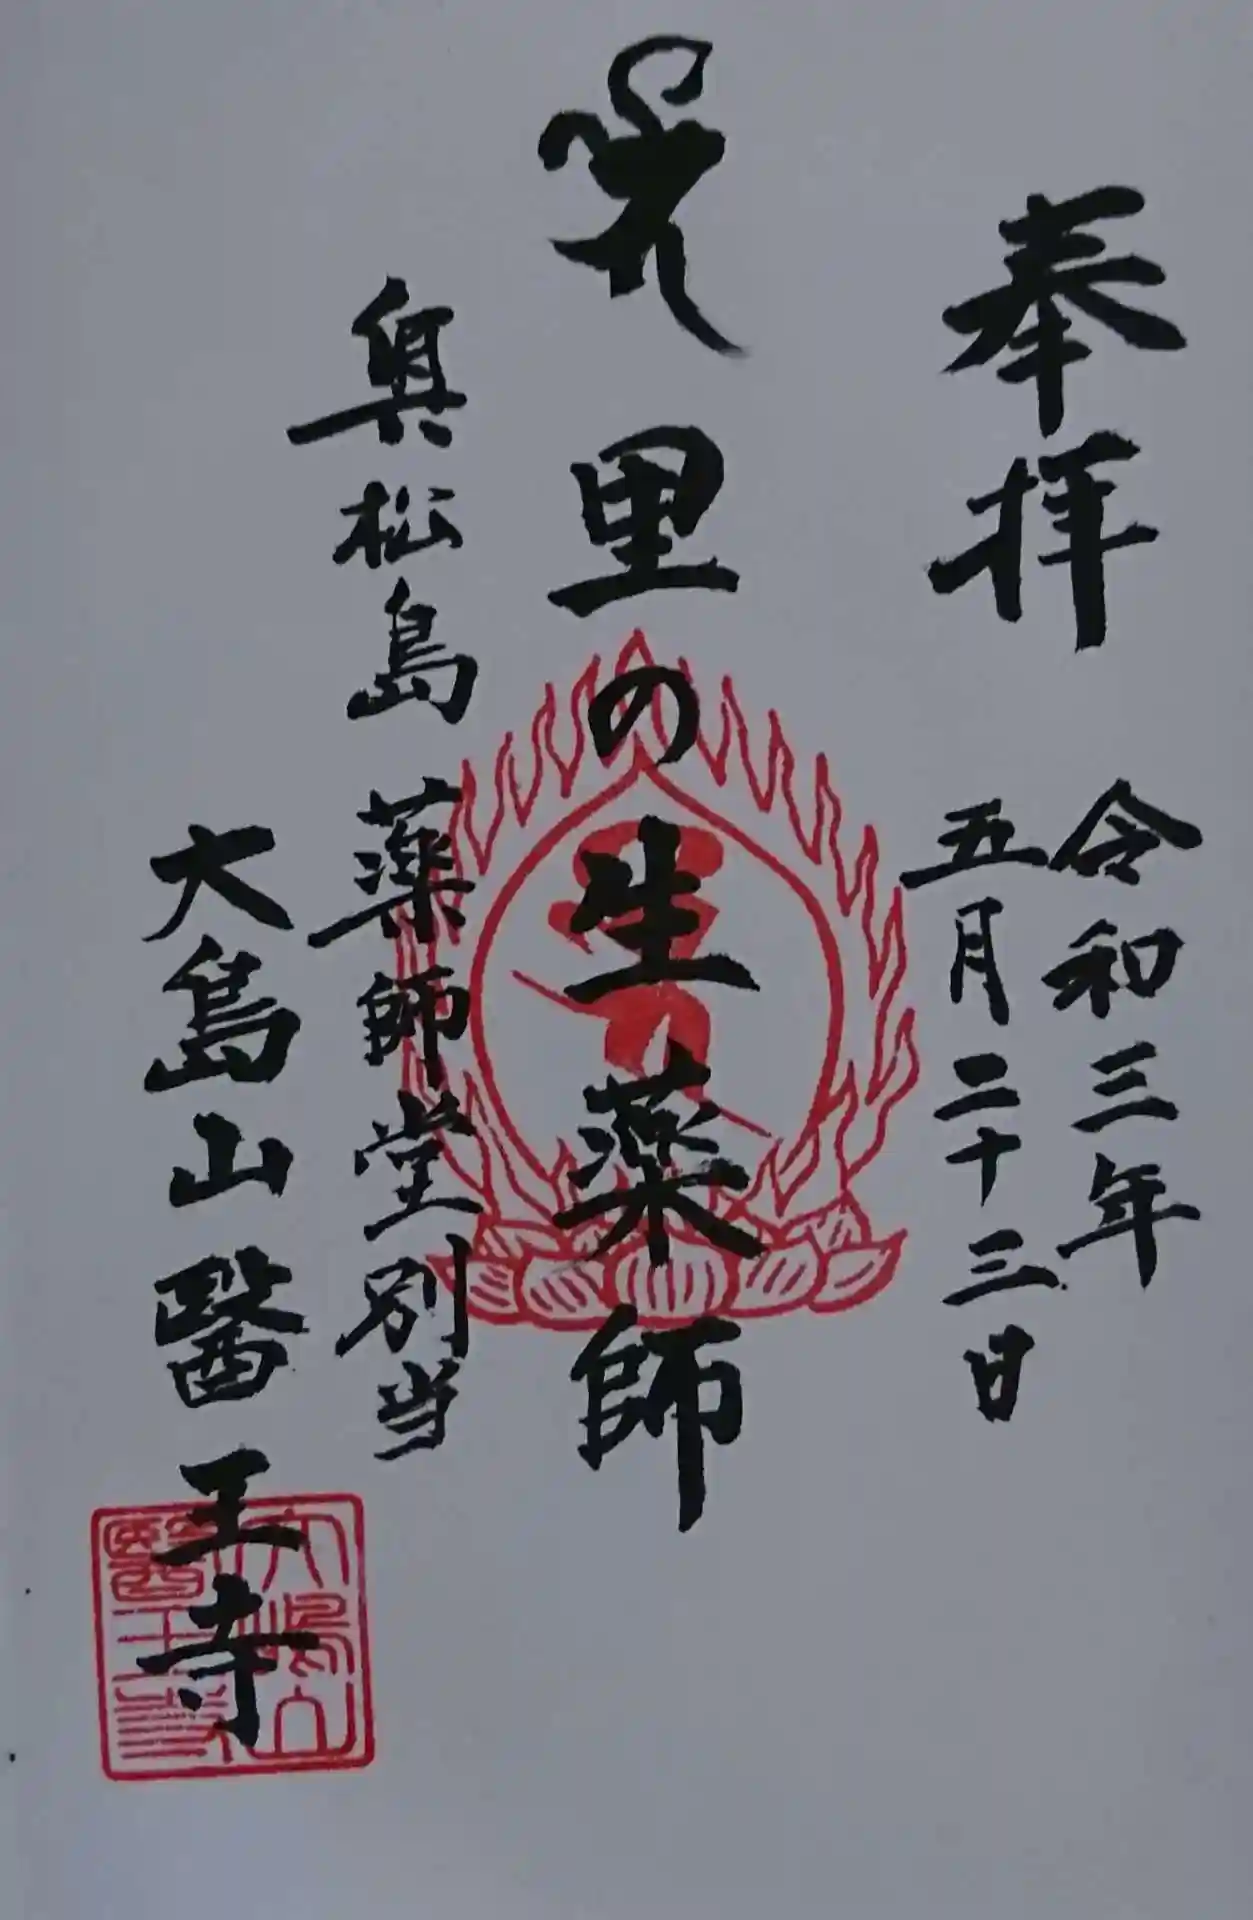 奉拝
令和三年
五月二十三日
里の生薬師
奥松島 薬師堂別当
大島山醫王寺
大嶋山
醫王寺